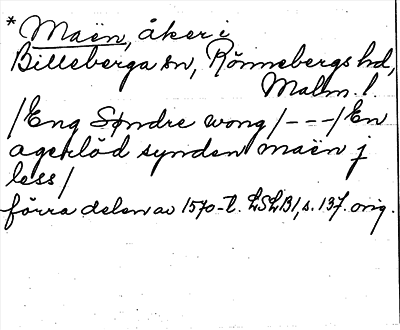 * Maën, åker i
Billeberga sn, Rönnebergs hd,
Malm. l.
/Eng Søndre wong/---/En
agerlöd synden maën j
less/
förra delen av 1570-t. LSLB1, s. 137. orig.